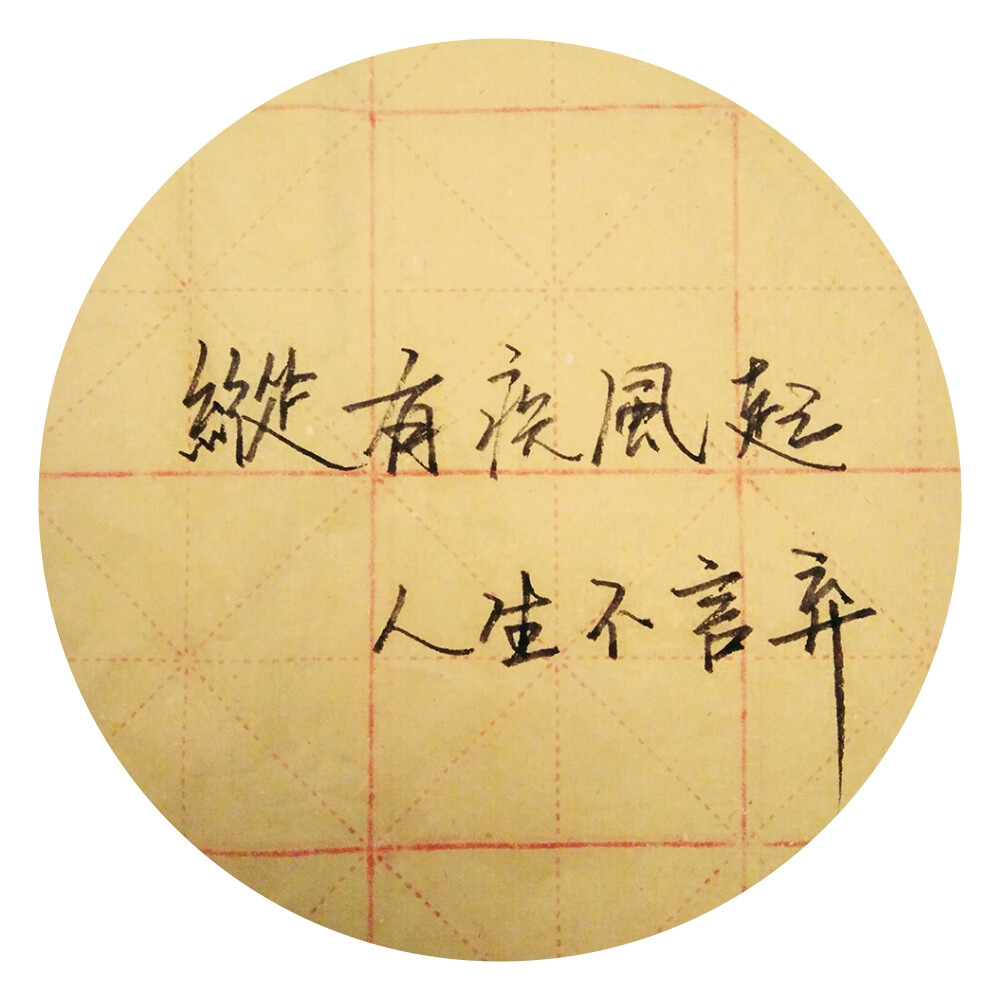 縱有疾風起
人生不言弃